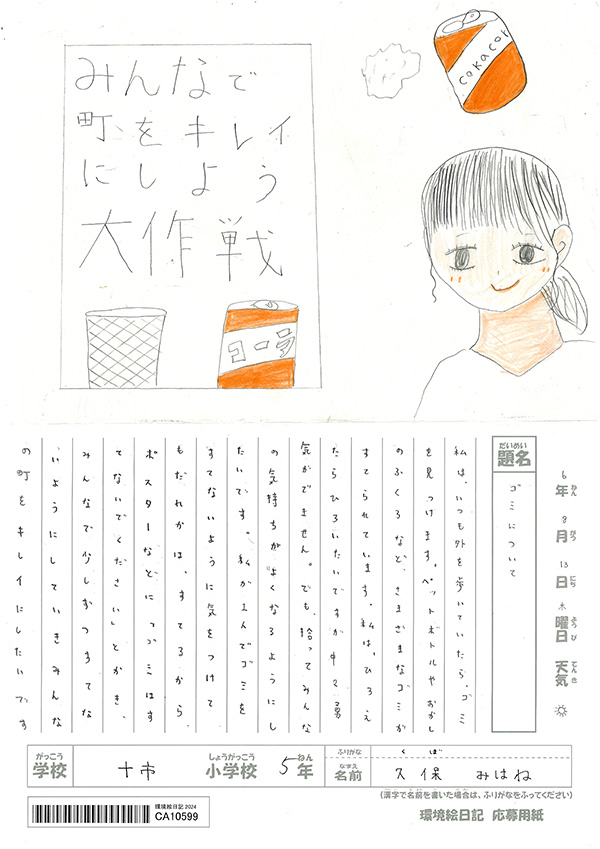 みんなで
町をキレイ
にしよう
大作戦
コーラ
cokacor
6年8月13日木曜日天気
ねんがつにちようびてんき
だいめい
題名
ゴミについて
私は、いつも外を歩いていたら、ゴミ
を見つけます。ペットボトルやおかし
のふくろなど、さまざまなゴミが
すてられています。私は、ひろえ
たらひろいたいですが中々勇
気がでません。でも、拾ってみんな
の気持ちがよくなるようにし
たいです。私が1人でゴミを
すてないように気をつけて
もだれかは、すてるから、
ポスターなどに「ゴミはす
てないでください」とかき、
みんなで少しずつすてな
いようにしていきみんな
の町をキレイにしたいです
がっこう
学校
十市
しょうがっこう
小学校
5
ねん
年
ふりがな
くぼ
なまえ
名前
久保 みはね
(漢字で名前を書いた場合は、ふりがなをふってください)
環境絵日記 2024
CA10599
環境絵日記 応募用紙